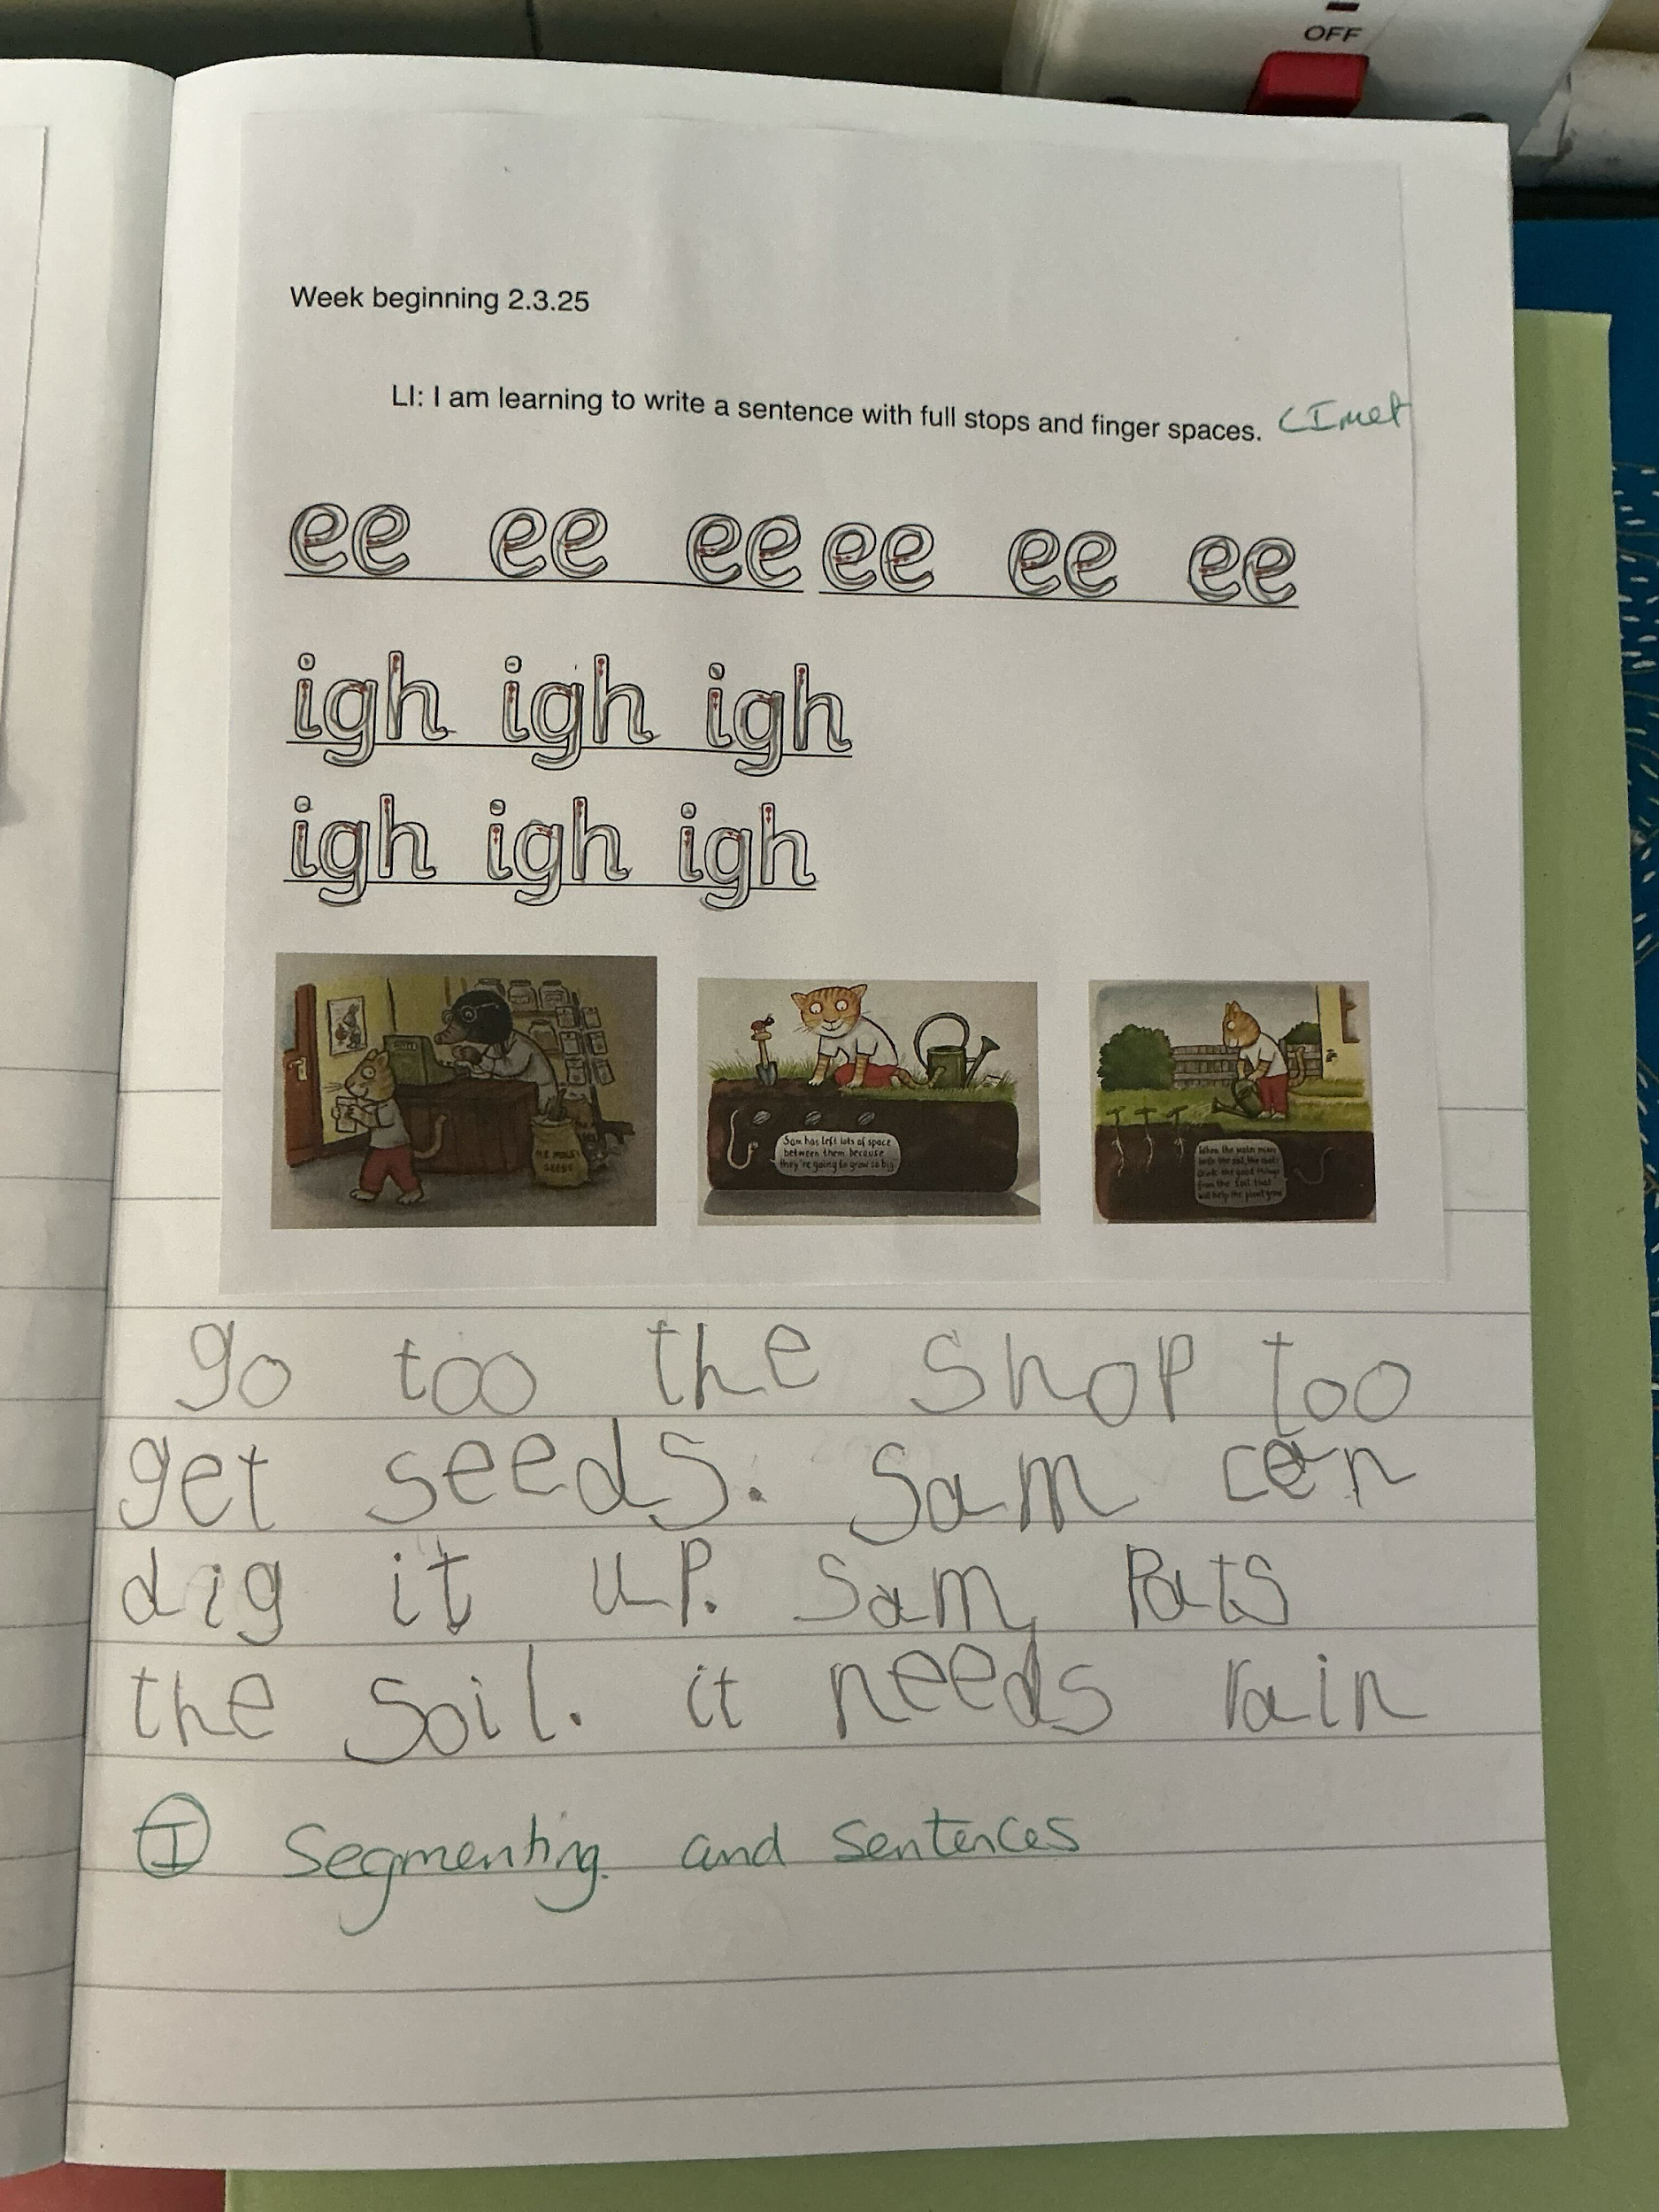 OFF
Week beginning 2.3.25
LI: I am learning to write a sentence with full stops and finger spaces. LI met
ee ee ee ee ee ee
igh igh igh
igh igh igh
Sam has left lots of space
between them because
they're going to grow so big
When the water mixes
with the soil, the roots
drink the good things
from the soil that
will help the plant grow
go too the shop too
get seeds. Sam can
dig it up. Sam Pats
the Soil. it needs rain
I Segmenting and sentences